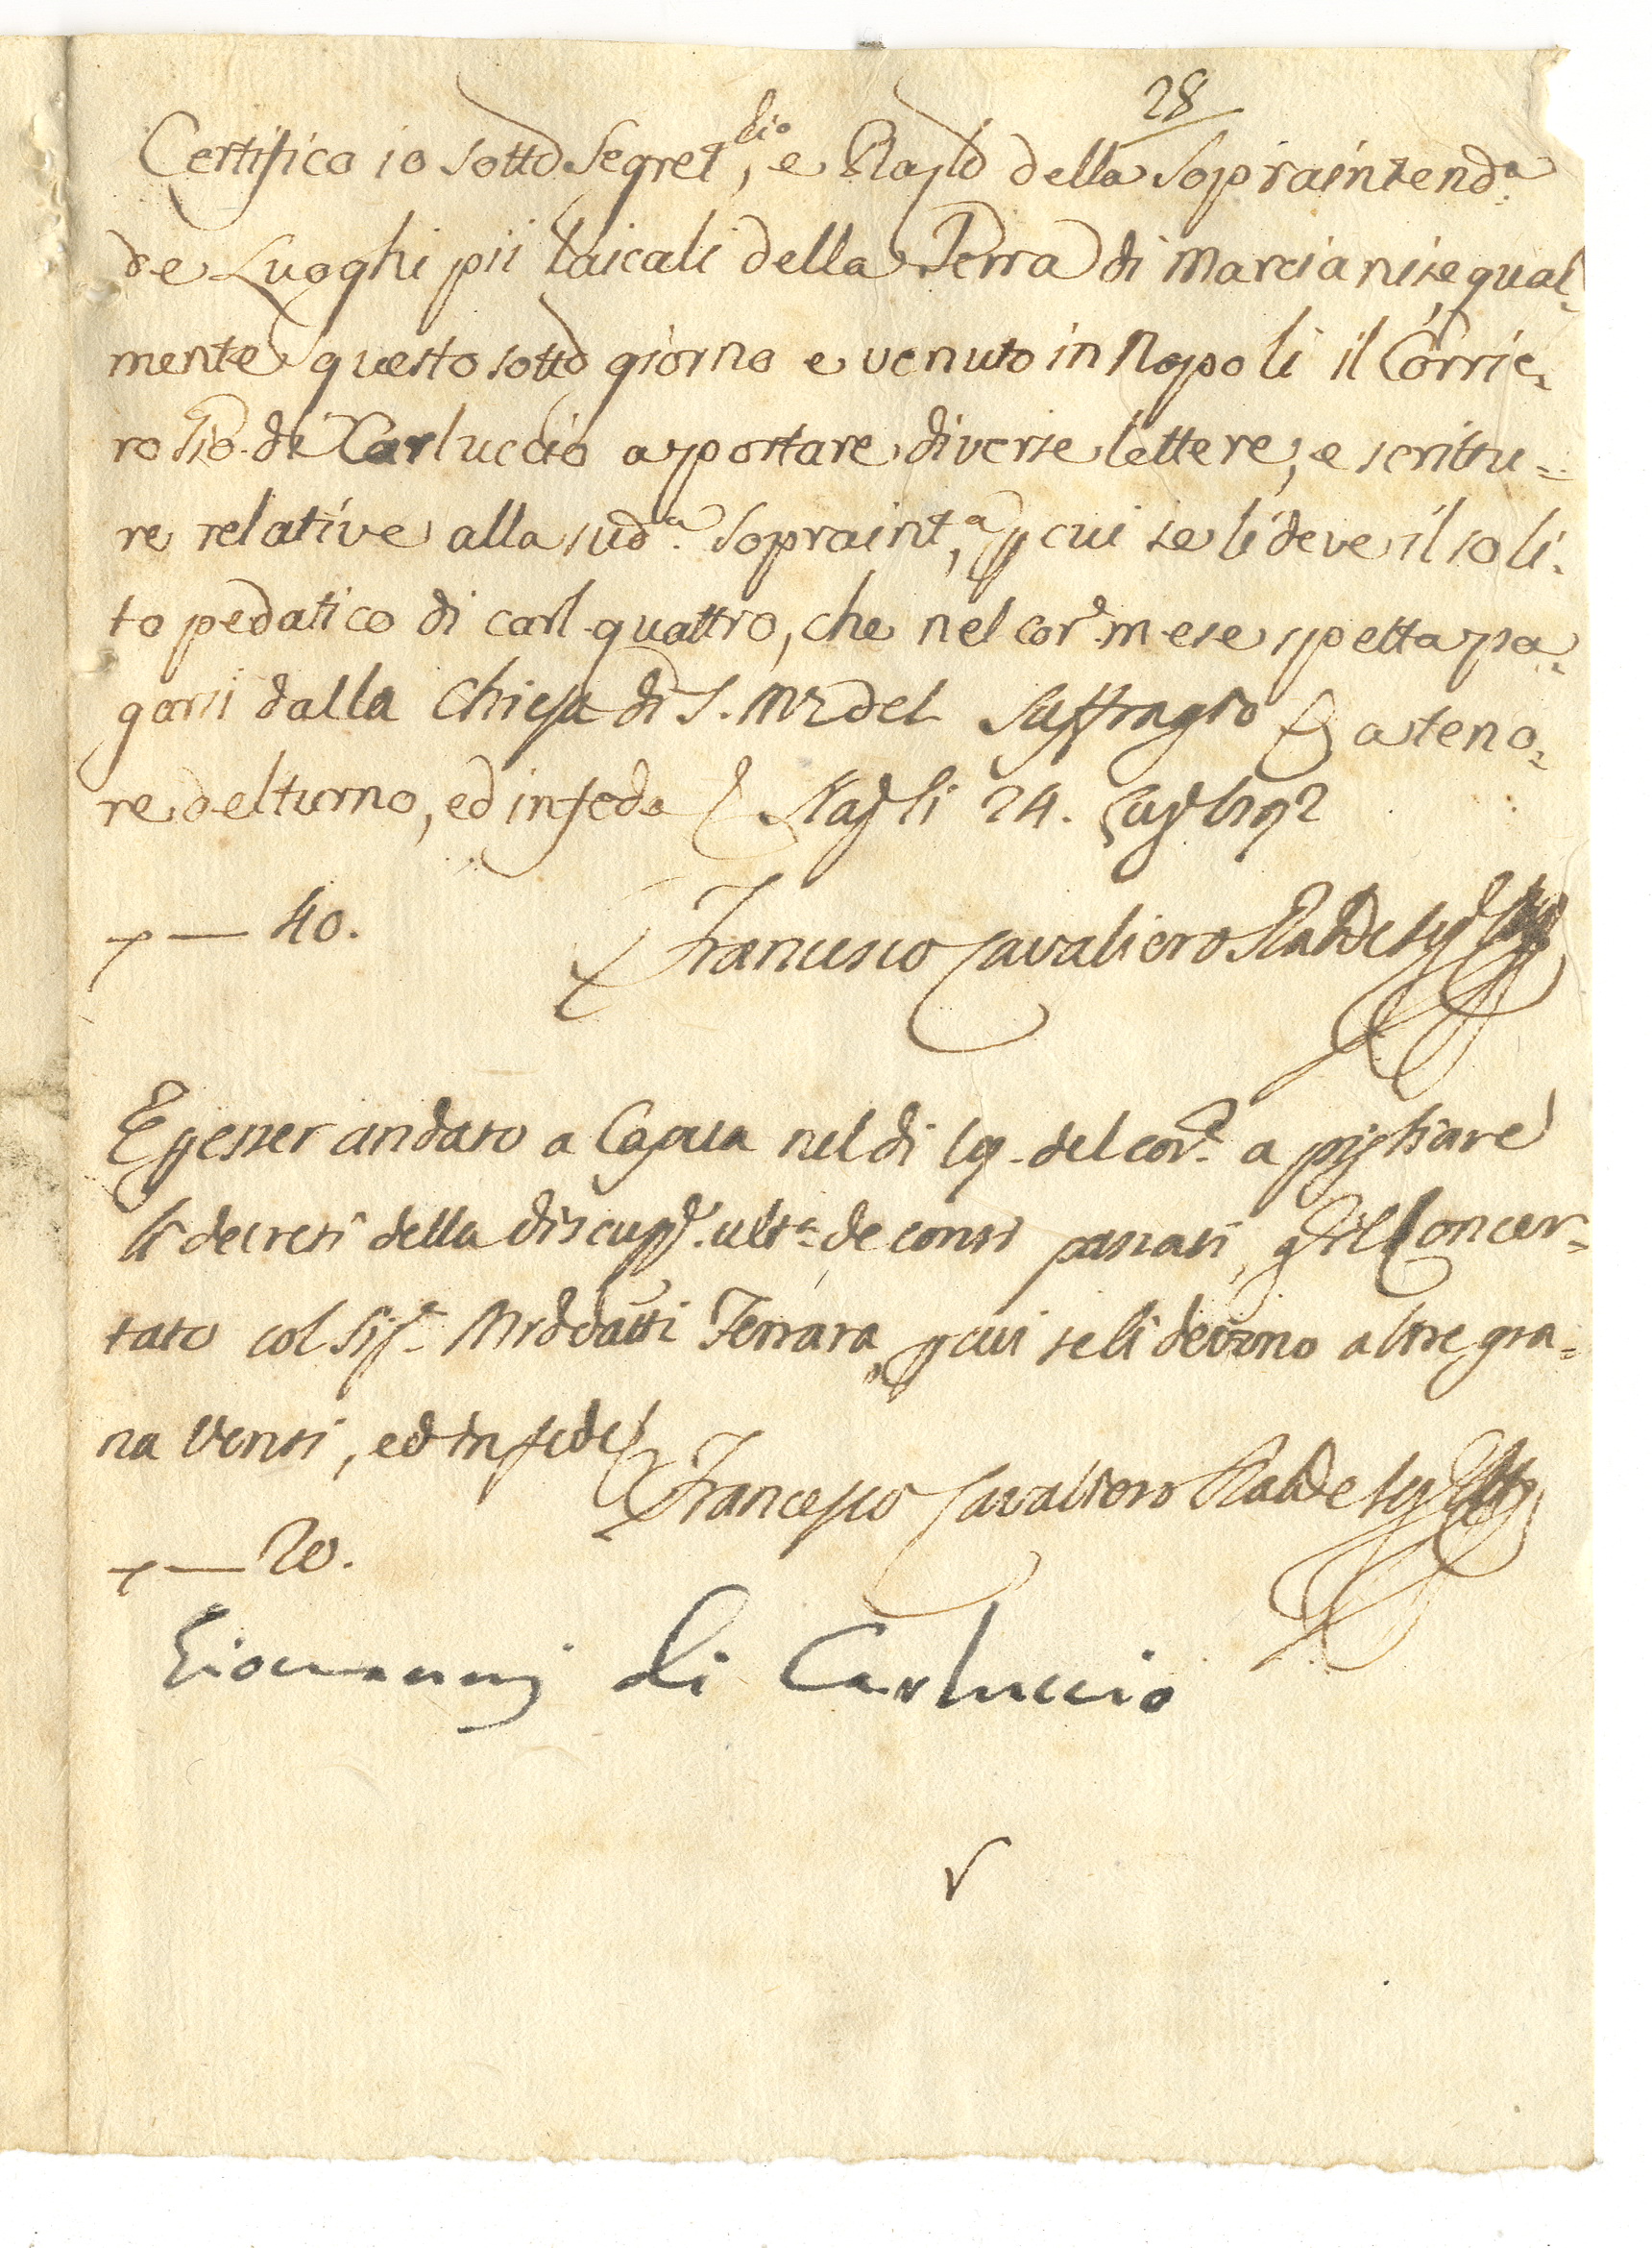 28
Certifico io sotto Segret.rio, e Raz.le della Sopraintend.a
de Luoghi pii laicali della Terra di Marcianise, qual-
mente questo sotto giorno e venuto in Napoli il Corrie-
ro Gio: di Carluccio a portare diverse lettere, e scrittu=
re relative alla sud.a Sopraint.a, p cui se li deve il soli-
to pedatico di carl. quattro, che nel cor.e mese spetta pa-
garsi dalla Chiesa di S. M.a del Suffragio a teno-
re del turno, ed in fede Nap.li 24.
— 40.
Francesco Cavaliero
E p esser andato a Capua nel dì 19. del cor.e a pigliare
li decreti della ult.a de conti passati, Concer=
tato col Sig.r M.rodatti Ferrara, p cui se li devono altre gra=
na venti, ed in fede
Francesco Cavaliero
— 20.
Giovanni di Carluccio